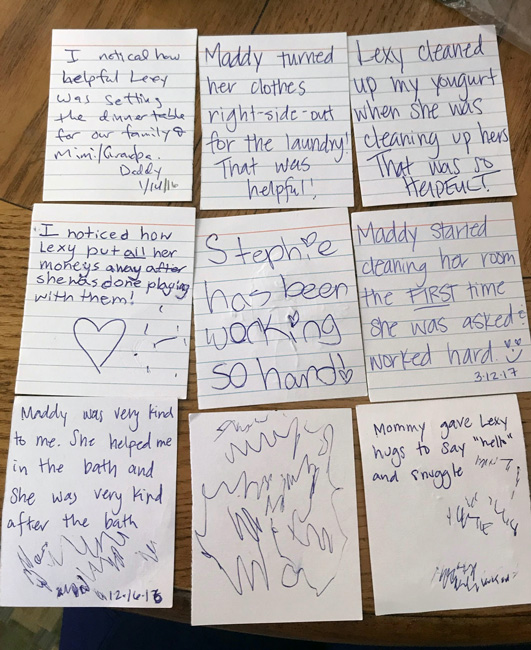 I notical how
helpful Lexy
was setting
the dinner table
for our family &
Mimi/Grandpa.
Daddy
1/14/16
Maddy turned
her clothes
right-side-out
for the laundry!
That was
helpful!
Lexy cleaned
up my yougurt
when she was
cleaning up hers
That was so
HELPFUL!
I noticed how
Lexy put all her
moneys away after
she was done playing
with them!
Stephie
has been
working
so hard
Maddy started
cleaning her room
the FIRST time
she was asked &
worked hard.
3-12-17
Maddy was very kind
to me. She helped me
in the bath and
She was very kind
after the bath
12-16-16
Mommy gave Lexy
hugs to say "hello"
and snuggle